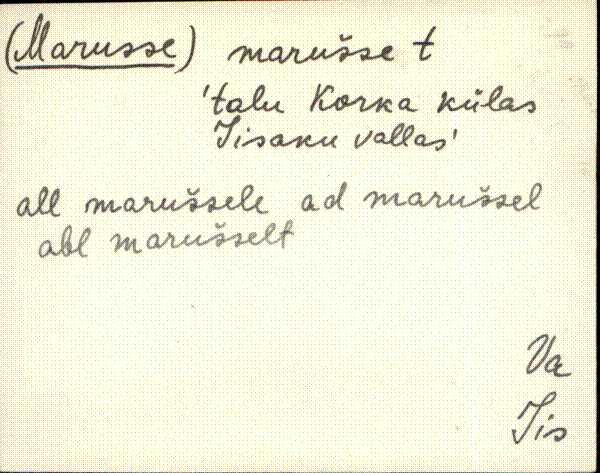 (Marusse) marušse t
'talu Korka külas
Iisaku vallas'
all marušsele ad marušsel
abl marušselt
Va
Iis